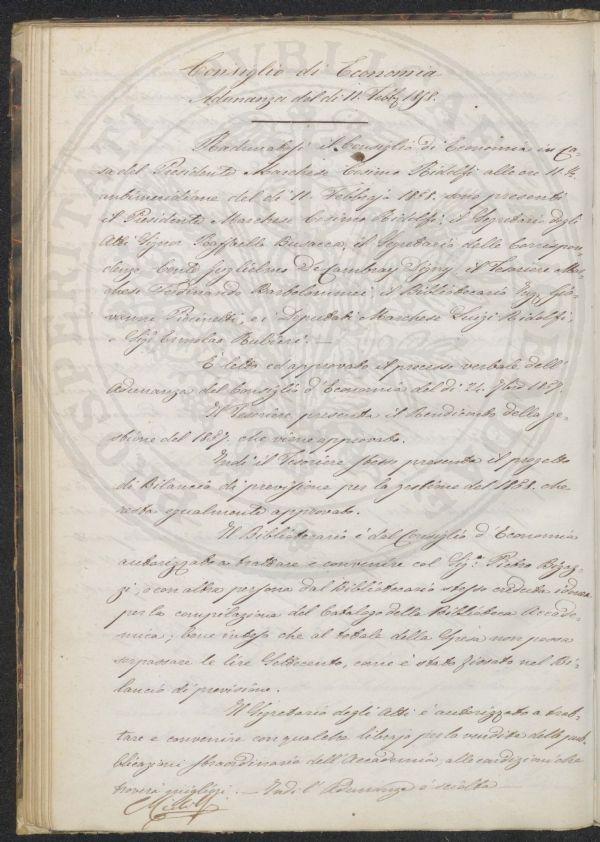 Consiglio di Economia
Adunanza del dì 11. Febb. 1858.
Radunatosi il Consiglio di Economia in Ca-
sa del Presidente Marchese Cosimo Ridolfi alle ore 11 ¼
antimeridiane del dì 11. Febbrajo 1858. sono presenti
il Presidente Marchese Cosimo Ridolfi, il Segretario degli
Atti Signor Raffaello Busacca, il Segretario delle Corrispon-
denze Conte Guglielmo De Cambray Digny, il Tesoriere Mar-
chese Ferdinando Bartolommei, il Bibliotecario Ing. Gio-
venni Pieinetti, e i Deputati Marchese Luigi Ridolfi,
e Sig. Ermolao Rubieri. —
È letto ed approvato il processo verbale dell'
Adunanza del Consiglio d'Economia del dì 24. 1857.
Il Tesoriere presenta il Rendiconto della ge-
stione del 1857. che viene approvato.
Indi il Tesoriere stesso presenta il progetto
di Bilancio di previsione per la gestione del 1858. che
resta egualmente approvato.
Il Bibliotecario è dal Consiglio d'Economia
autorizzato a trattare e convenire col Sig.r Pietro Bigaz-
zi, o con altra persona dal Bibliotecario stesso creduta idonea
per la compilazione del Catalogo della Biblioteca Accade-
mica; bene inteso che al totale della spesa non possa
sorpassare le lire Settecento, come è stato fissato nel Bi-
lancio di previsione.
Il Segretario degli Atti è autorizzato a trat-
tare e convenire con qualche librajo per la vendita delle pub-
blicazioni straordinarie dell'Accademia, alle condizioni che
troverà migliori. — Indi l'Adunanza è sciolta —
PROSPERITATI PUBLICAE AUGENDAE